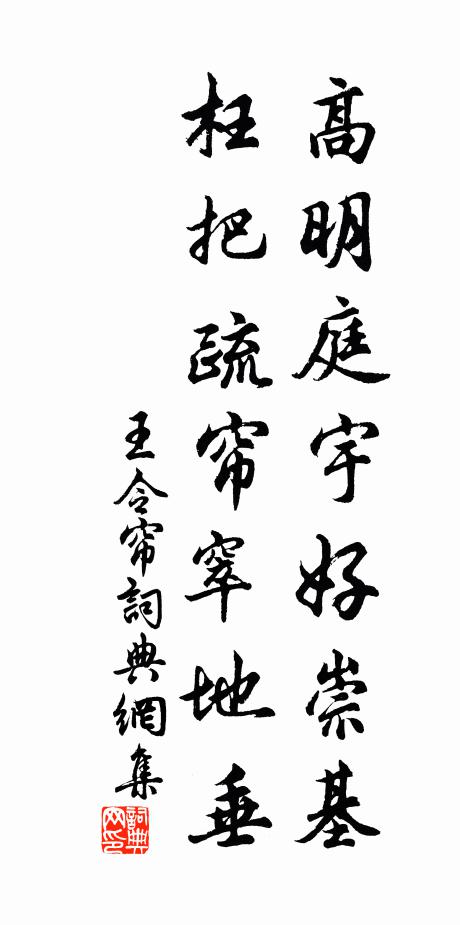 高明庭宇好崇基
枉把疏帘窣地垂
王令帘詞典網集
詞典網印